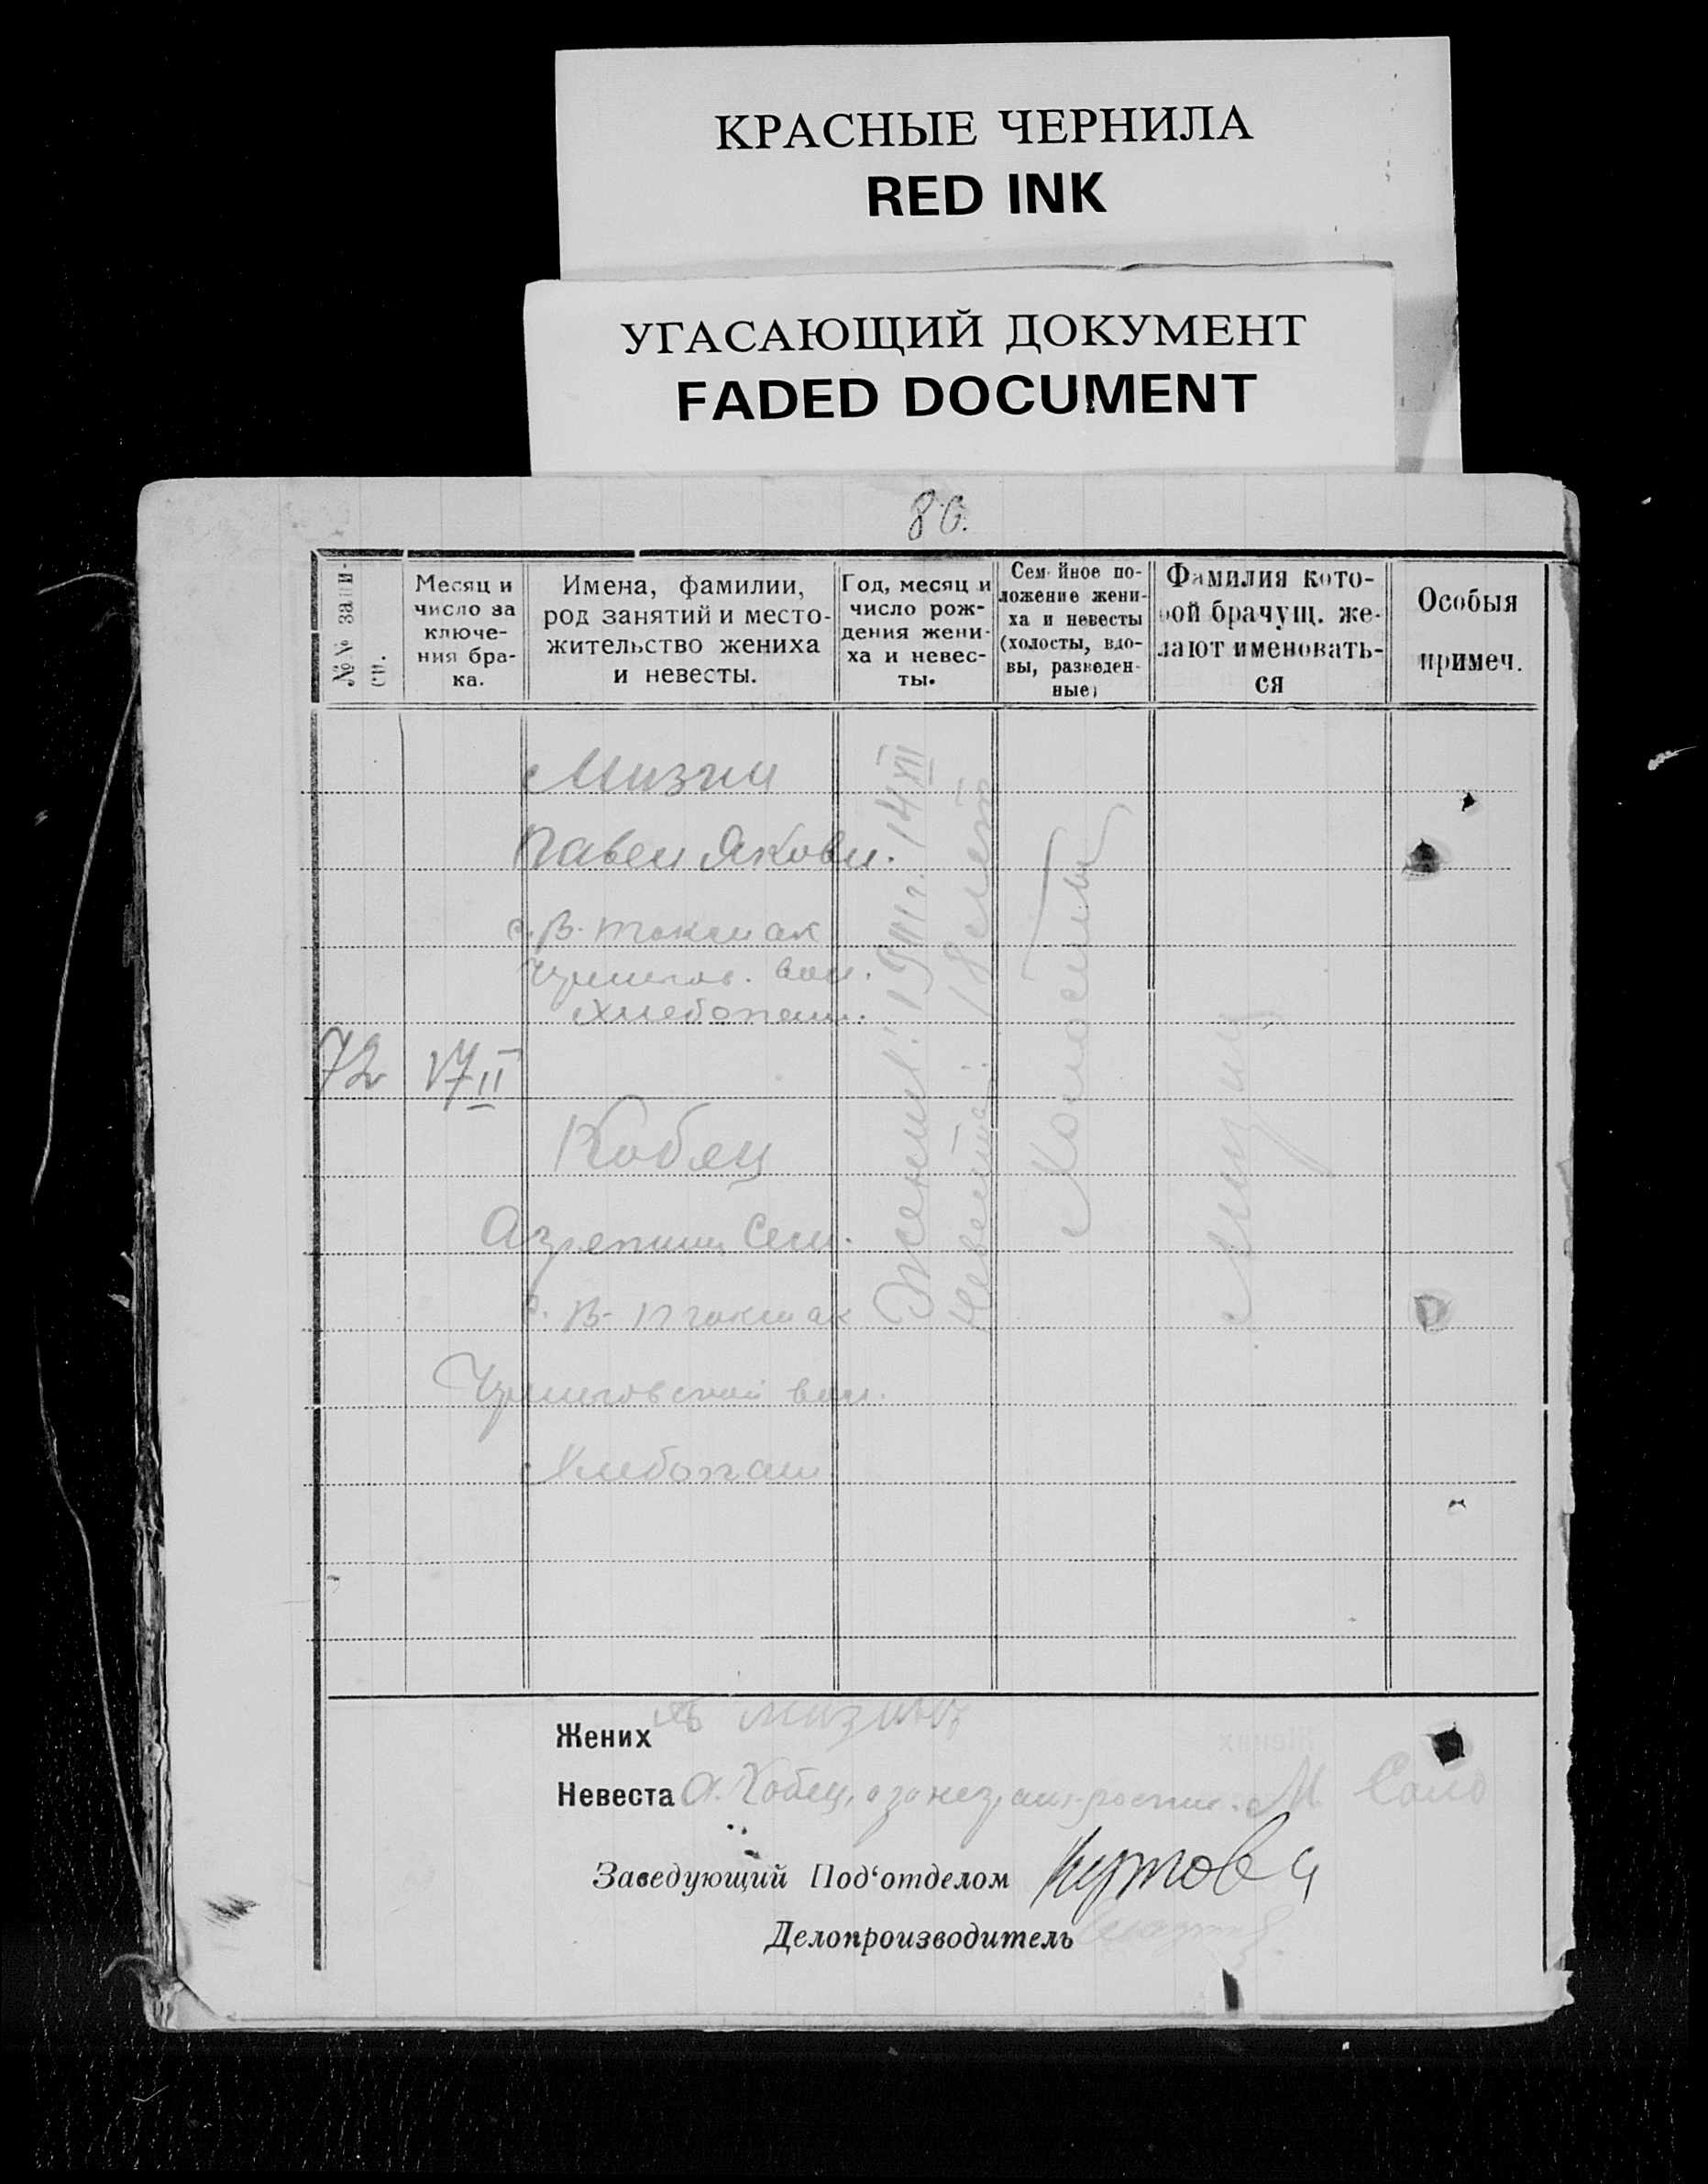 КРАСНЫЕ ЧЕРНИЛА
RED INK
УГАСАЮЩИЙ ДОКУМЕНТ
FADED DOCUMENT
80.
№№ запи-
си.
Месяц и
число за
ключе-
ния бра-
ка.
Имена, фамилии,
род занятий и место-
жительство жениха
и невесты.
Год, месяц и
число рож-
дения жени-
ха и невес-
ты.
Семейное по-
ложение жени-
ха и невесты
(холосты, вдо-
вы, разведен-
ные)
Фамилия кото-
рой брачущ. же-
лают именовать-
ся
Особыя
примеч.
72
17 II
Мизин
Павел Яковл.
с. В. Токмак
Черниговс. вол.
Хлебопаш.
Кобец
Агрепина Сем.
с. В-Токмак
Черниговской вол.
Хлебопаш
Жених: 1901 г. 14 XII
Невеста: 18 лет
Холостые
Мизин
Жених
Мизин
Невеста А. Кобец, а за негр. распис. М
Заведующий Под'отделом
Делопроизводитель